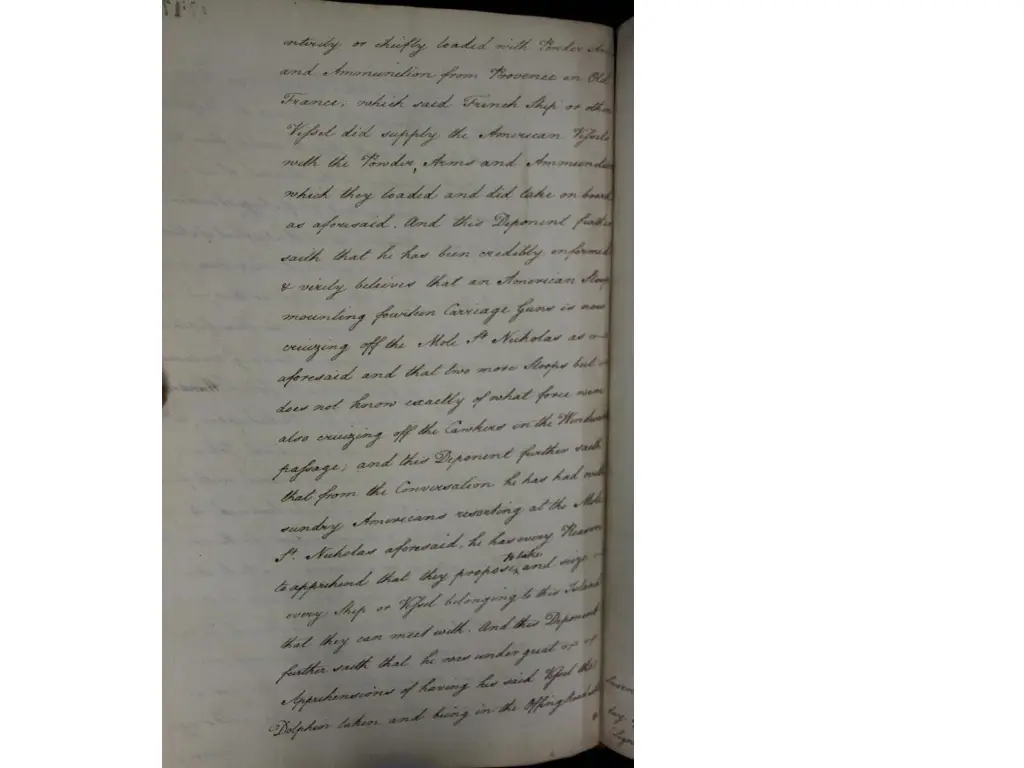 intirely or chiefly loaded with Powder Arms
and Ammunition from Provence in Old
France, which said French Ship or other
Vessel did supply the American Vessels
with the Powder, Arms and Ammunition
which they loaded and did take on board
as aforesaid. And this Deponent further
saith that he has been credibly informed
& verily beleives that an American Sloop
mounting fourteen Carriage Guns is now
cruizing off the Mole St. Nicholas as
aforesaid and that two more Sloops but
does not know exactly of what force were
also cruizing off the in the Windward
passage; and this Deponent further saith
that from the Conversation he has had with
sundry Americans resorting at the Mole
St. Nicholas aforesaid, he has every Reason
to apprehend that they propose to take and seize
every Ship or Vessel belonging to this Island
that they can meet with. And this Deponent
further saith that he was under great
Apprehensions of having his said Vessel the
Dolphin taken and being in the Offing